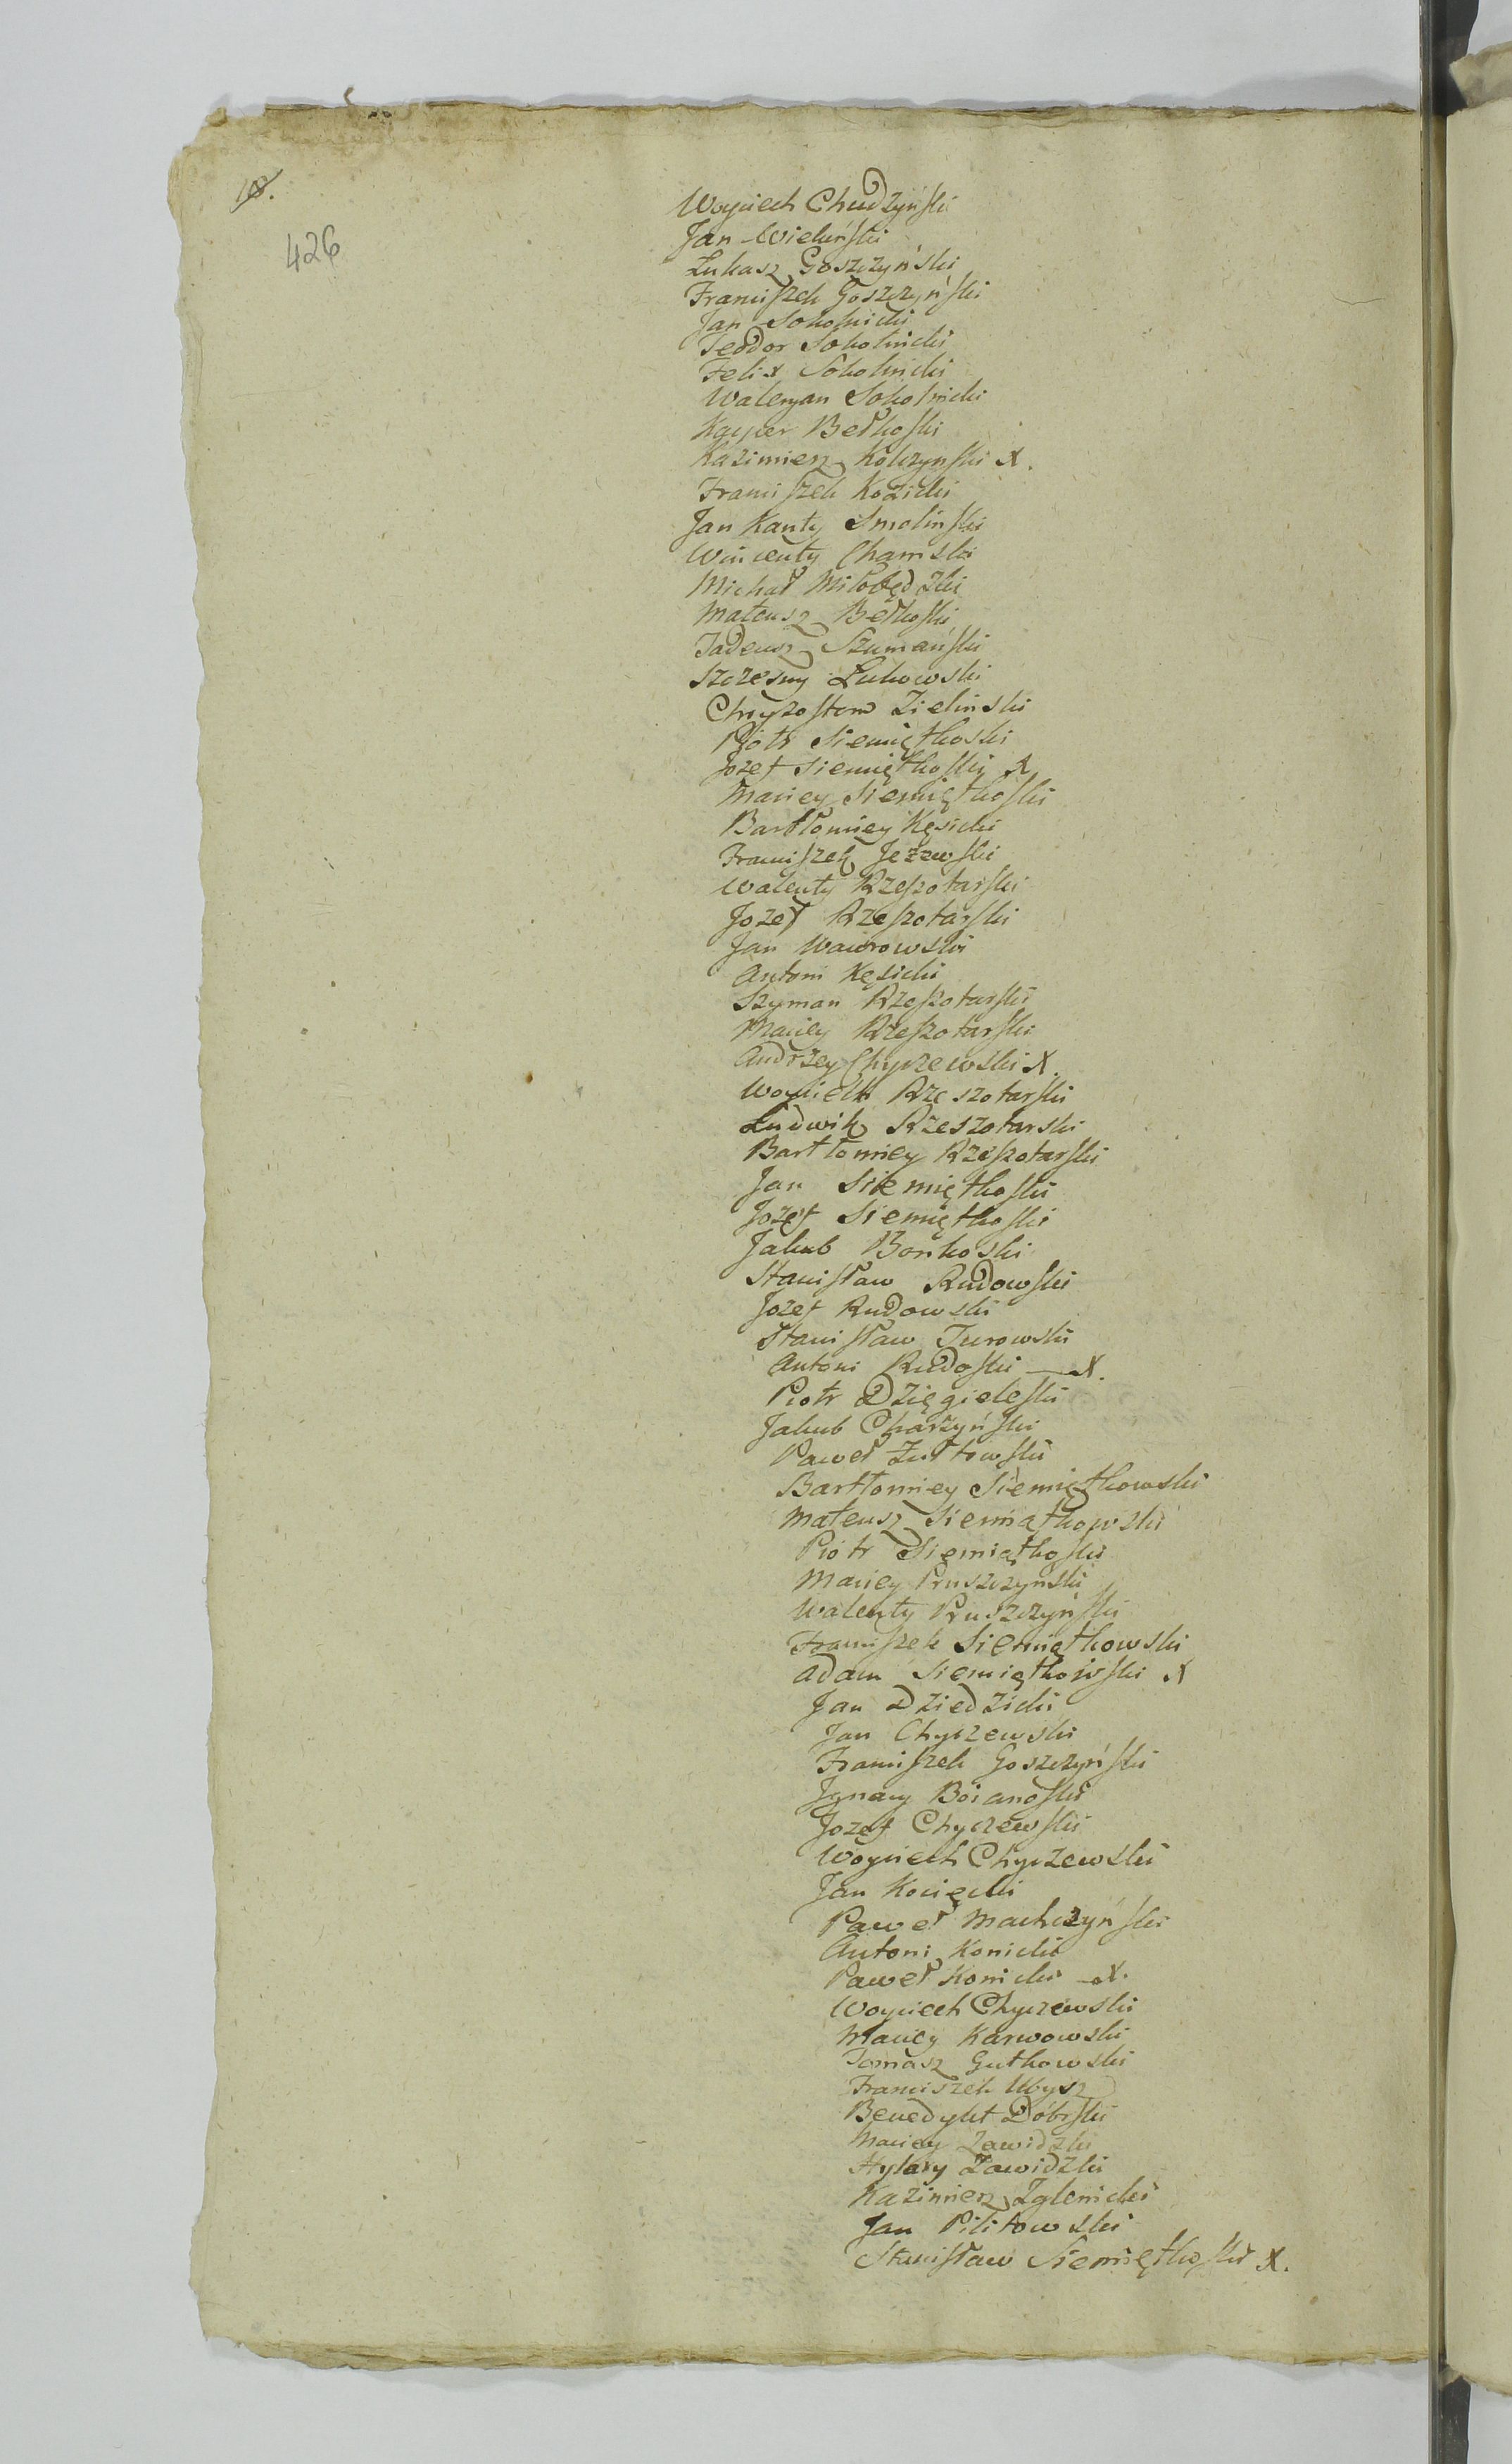 18.
426
Woyciech Chudzyński
Jan Wieluński
Łukasz Goszczyński
Franciszek Goszczyński
Jan Sokolnicki
Teodor Sokolnicki
Felix Sokolnicki
Waleryan Sokolnicki
Kacper Bełkoski
Kazimierz Kolczynski X.
Franciszek Kozicki
Jan Kanty Smolinski
Wincenty Chamski
Michał Miłobędzki
Mateusz Bełkoski
Tadeusz Szumański
Szczesny Łukowski
Chryzostom Zielinski
Piotr Siemiętkoski
Jozef Siemiętkoski X
Maciey Siemiętkoski
Bartłomiey Kęsicki
Franciszek Jezewski
Walenty Rzeszotarski
Jozef Rzeszotarski
Jan Wawrowski
Antoni Kęsicki
Szyman Rzeszotarski
Maciey Rzeszotarski
Andrzey Chyczewski X.
Woyciech Rzeszotarski
Ludwik Rzeszotarski
Bartłomiey Rzeszotarski
Jan Siemiętkoski
Jozef Siemiętkoski
Jakub Bonkoski
Stanisław Rudowski
Jozef Rudowski
Stanisław Turowski
Antoni Rudoski — X.
Piotr Dzięgieleski
Jakub Charzyński
Paweł Zułtowski
Bartłomiey Siemiątkowski
Mateusz Siemiątkowski
Piotr Siemiątkoski
Maciey Pruszczynski
Walenty Pruszczyński
Franciszek Siemiątkowski
Adam Siemiątkowski X
Jan Dziedzicki
Jan Chyczewski
Franciszek Goszczyński
Jgnacy Boianoski
Jozef Chyczewski
Woyciech Chyczewski
Jan Kocięcki
Paweł Machczyński
Antoni Konicki
Paweł Konicki X.
Woyciech Chyczewski
Maciey Karwowski
Tomasz Gutkowski
Franciszek Ubysz
Benedykt Dobrski
Maciey Zawidzki
Hylary Zawidzki
Kazimierz Zglenicki
Jan Pilitowski
Stanisław Siemiętkoski X.